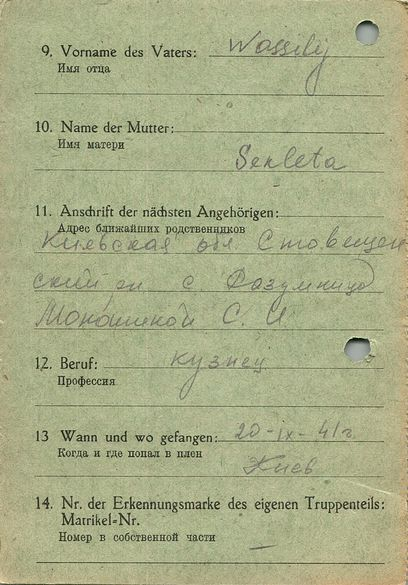 9. Vorname des Vaters: Wassilij
Имя отца
10. Name der Mutter:
Имя матери
Senleta
11. Anschrift der nächsten Angehörigen:
Адрес ближайших родственников
Киевская обл Ставищен
ский рн с. Розумница
С. И.
12. Beruf: кузнец
Профессия
13 Wann und wo gefangen: 20-IX-41 г.
Когда и где попал в плен
Киев
14. Nr. der Erkennungsmarke des eigenen Truppenteils:
Matrikel=Nr.
Номер в собственной части
—